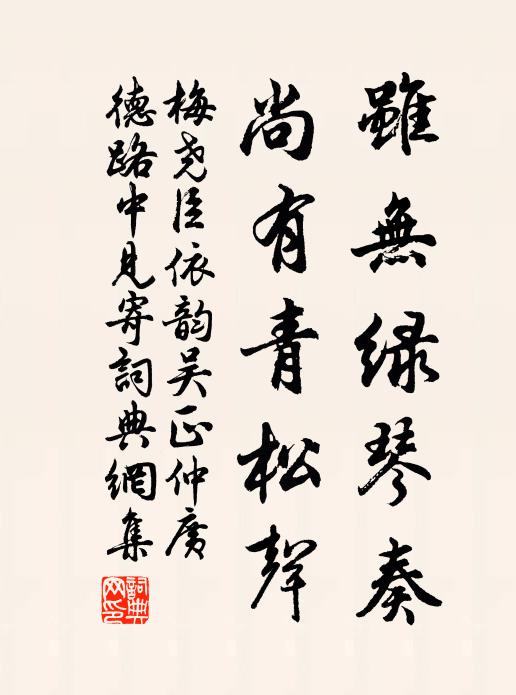 雖無緑琴奏
尚有青松聲
梅尧臣依韵吴正仲廣
德路中見寄詞典網集
詞典网印